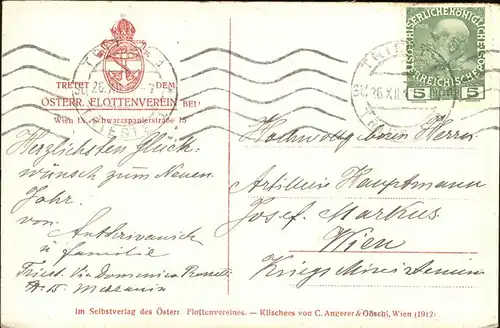 TRETET DEM
ÖSTERR. FLOTTENVEREIN BEI!
Wien IX., Schwarzspanierstraße 15
KAISERLICHE KÖNIGLICHE
ÖSTERREICHISCHE
5 HELLER 5
TRIEST
TRIESTE
26.XII
Herzlichsten Glück-
wunsch zum Neuen
Jahr.
von
u Familie
Triest. Via Domenico Rossetti
Hochwohlgeboren Herrn
Artillerie Hauptmann
Josef Markus
Wien
Kriegsministerium
Im Selbstverlag des Österr. Flottenvereines. — Klischees von C. Angerer & Göschl, Wien (1912)